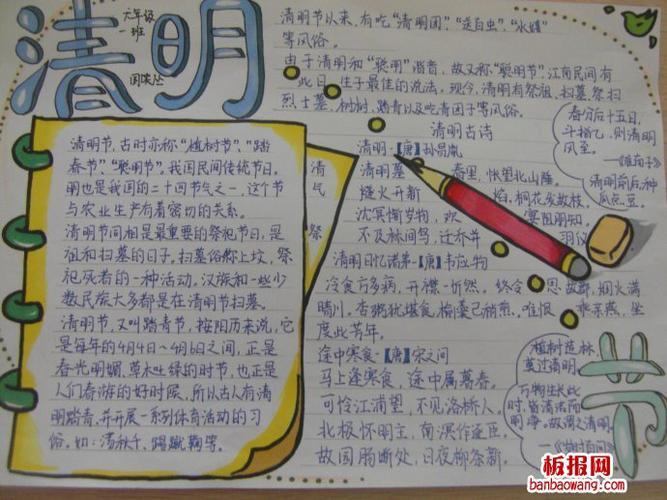 清明
六年级
一班
清明节以来,有吃“清明团”,“送百虫”,“水嬉”
等风俗。
由于清明和“聪明”谐音,故又称“聪明节”,江南民间有
此日 生子最佳的说法,现今,清明有祭祖,扫墓,祭扫
烈士墓,植树,踏青以及吃青团子等风俗。
清明古诗
清明·【唐】孙昌胤
清明暮 春里,怅望北山陲。
燧火开新 焰,桐花发故枝。
沈冥惭岁物,欢 宴阻朋知。
不及林间鸟,迁乔并 羽仪
清明日忆诸弟·【唐】韦应物
冷食方多病,开襟一忻然。终令 思故郡,烟火满
晴川。杏粥犹堪食,榆羹已稍煎。唯恨 乖亲燕,坐
度此芳年。
途中寒食·【唐】宋之问
马上逢寒食,途中属暮春。
可怜江浦望,不见洛桥人。
北极怀明主,南溟作逐臣。
故国肠断处,日夜柳条新。
春分后十五日,
斗指乙,则清明
风至。
清明前后,种
瓜点豆。
植树造林,
莫过清明。
万物生长此
时,皆清洁而
明净,故谓之清明。
节
清明节,古时亦称“植树节”,“踏
春节”,“聪明节”。我国民间传统节日。
明也是我国的二十四节气之一,这个节
与农业生产有着密切的关系。
清明节间相是最重要的祭祀节日,是
祖和扫墓的日子。扫墓俗称上坟,祭
祀死者的一种活动。汉族和一些少
数民族大多都是在清明节扫墓。
清明节,又叫踏青节,按阳历来说,它
是每年的4月4日~4月6日之间,正是
春光明媚,草木吐绿的时节,也正是
人们春游的好时候,所以古人有清
明踏青,并开展一系列体育活动的习
俗。如:荡秋千、踢蹴鞠等。
清
气
祭
板报网
banbaowang.com